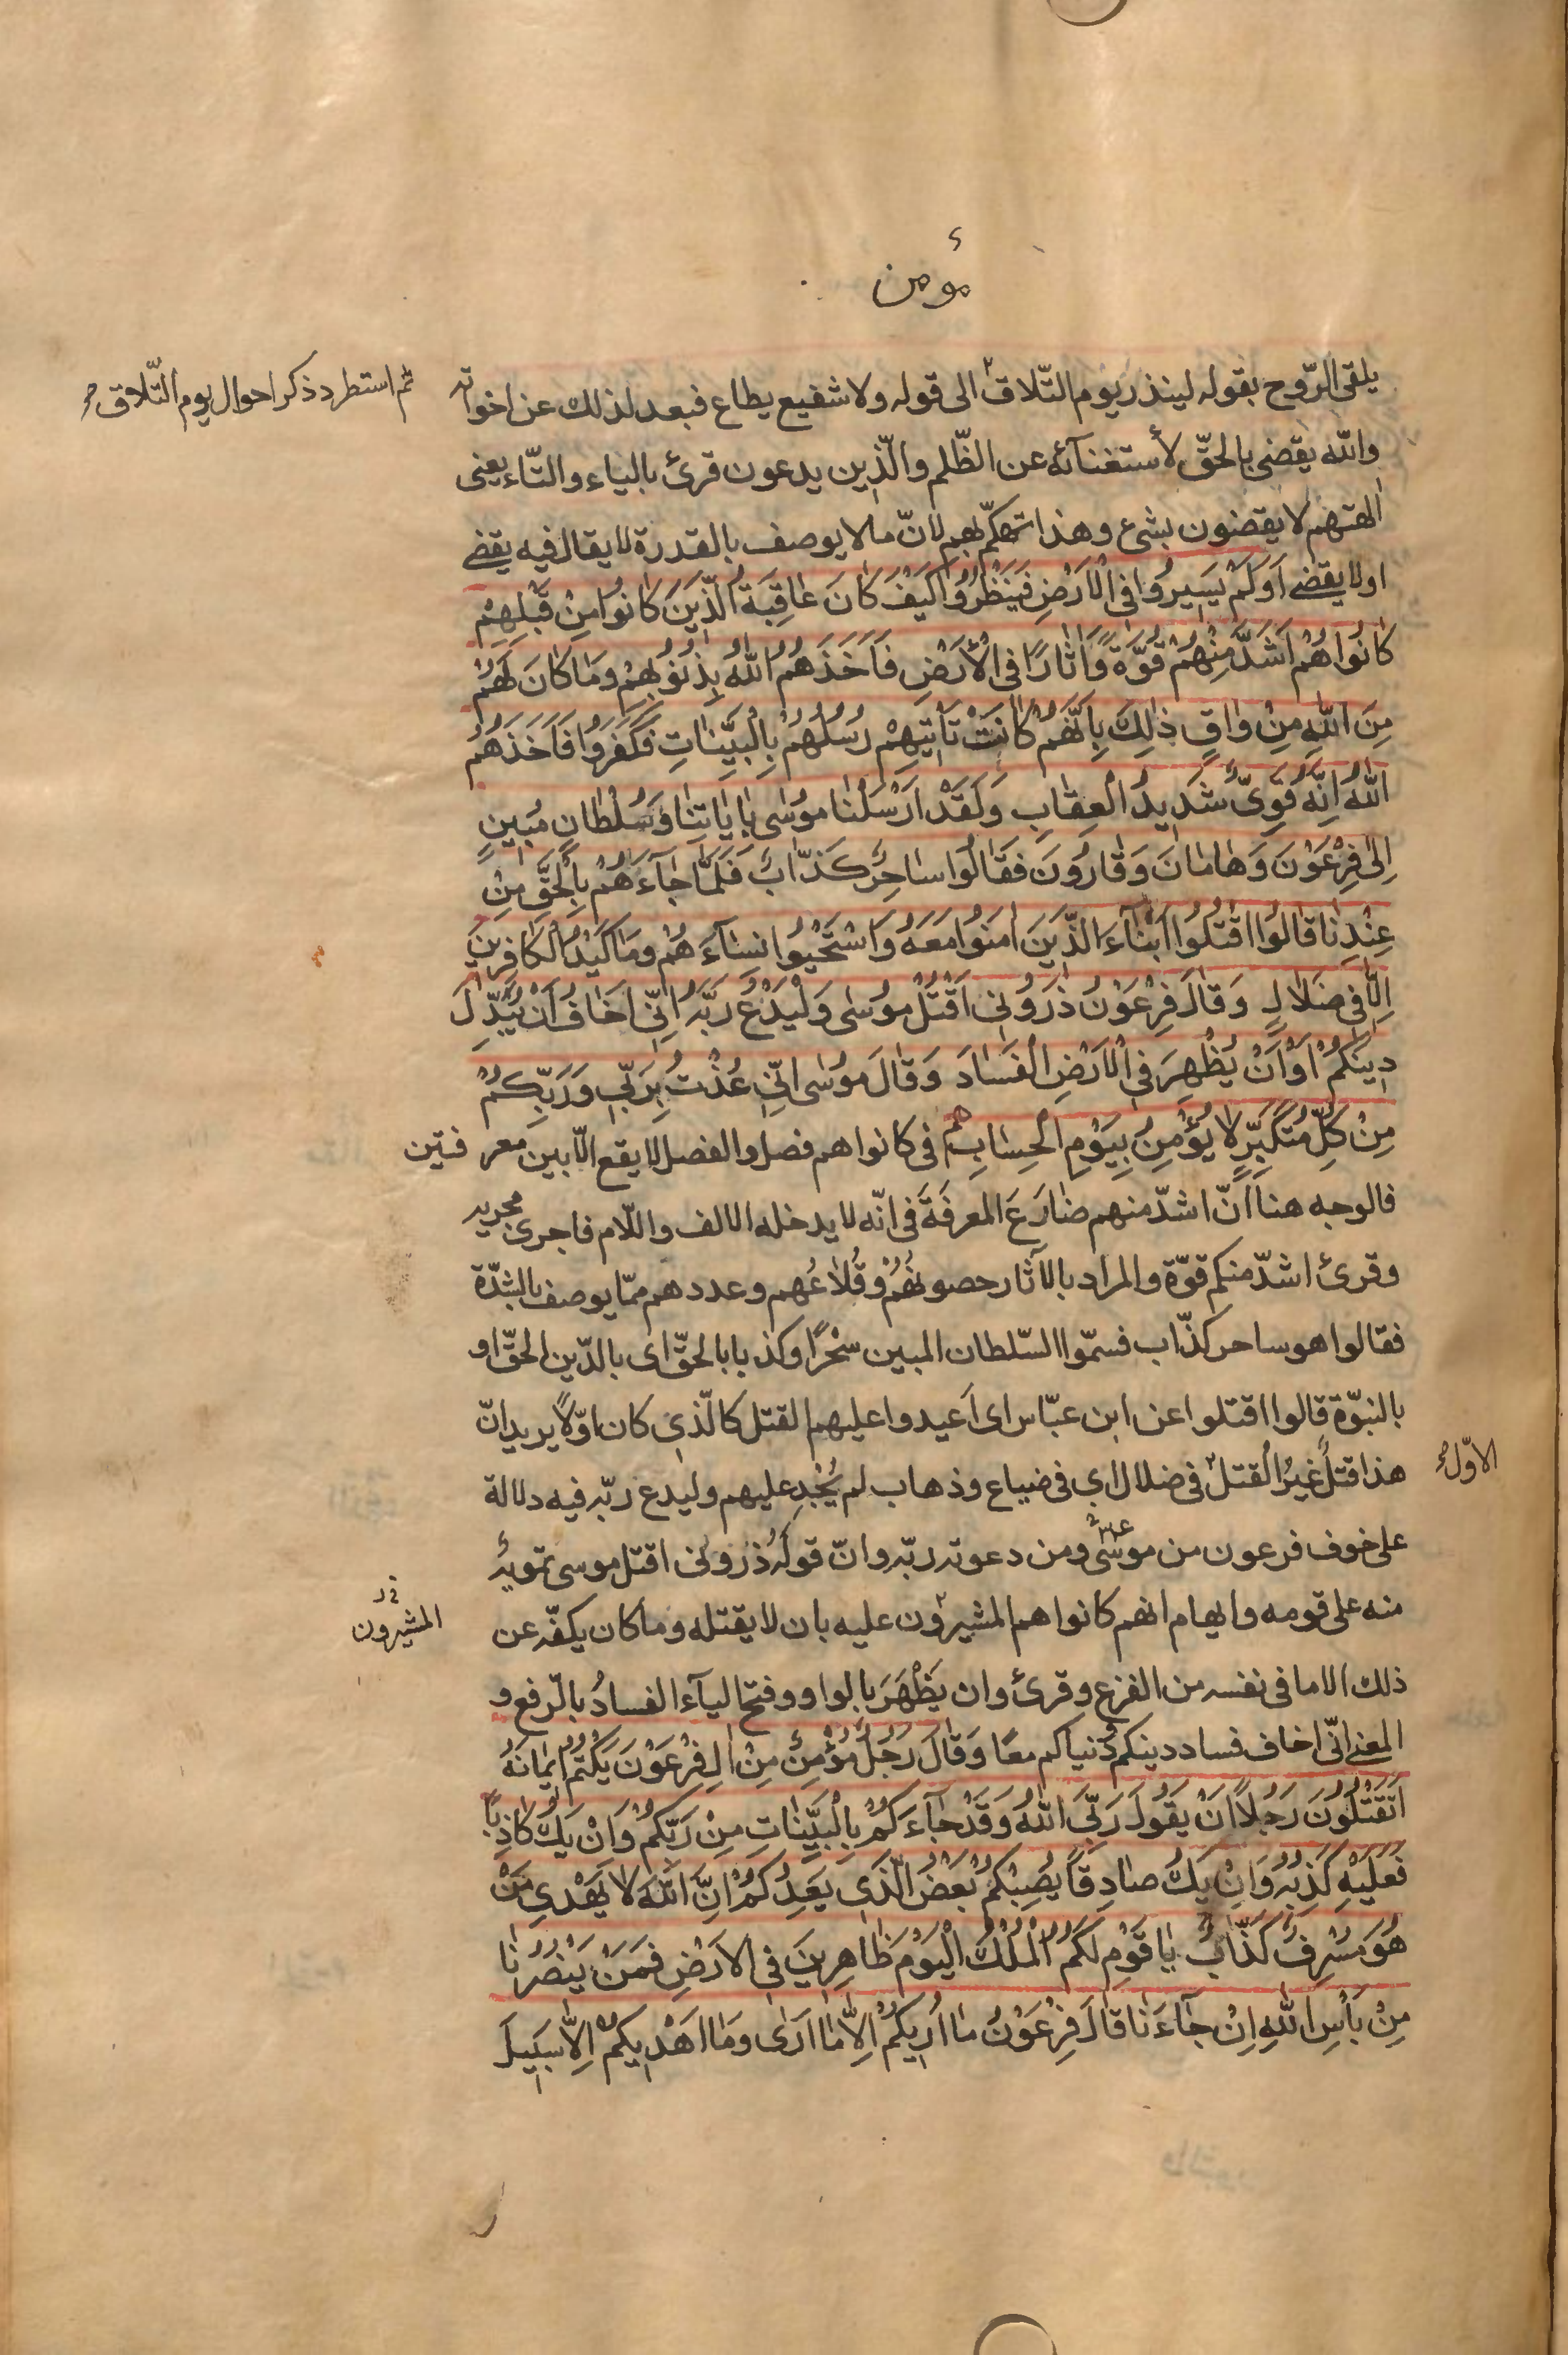 مؤمن
يلقى الرّوح بقوله لينذر يوم التّلاق الى قوله ولا شفيع يطاع فبعد لذلك عن اخواته
ثم استطرد ذكر احوال يوم التّلاق صح
والله يقضى بالحقّ لأستغنآئه عن الظّلم والّذين يدعون قرئ بالياء والتّاء يعنى
الهتهم لا يقضون بشئ وهذا تهكّم بهم لانّ ما لا يوصف بالقدرة لا يقال فيه يقضے
اولا يقضے اَوَلَمْ يَسيرُوا فِى الْاَرْضِ فَيَنْظُرُوا كَيْفَ كَانَ عَاقِبَةُ الَّذينَ كَانُوا مِنْ قَبْلِهِمْ
كَانُوا هُمْ اَشَدَّ مِنْهُمْ قُوَّةً وَاٰثَارًا فِى الْاَرْضِ فَاَخَذَهُمُ اللهُ بِذُنُوبِهِمْ وَمَا كَانَ لَهُمْ
مِنَ اللهِ مِنْ وَاقٍ ذٰلِكَ بِاَنَّهُمْ كَانَتْ تَاْتيهِمْ رُسُلُهُمْ بِالْبَيِّنَاتِ فَكَفَرُوا فَاَخَذَهُمُ
اللهُ اِنَّهُ قَوِىٌّ شَديدُ الْعِقَابِ وَلَقَدْ اَرْسَلْنَا مُوسٰى بِاٰيَاتِنَا وَسُلْطَانٍ مُبينٍ
اِلٰى فِرْعَوْنَ وَهَامَانَ وَقَارُونَ فَقَالُوا سَاحِرٌ كَذَّابٌ فَلَمَّا جَاۤءَهُمْ بِالْحَقِّ مِنْ
عِنْدِنَا قَالُوا اقْتُلُوا اَبْنَاۤءَ الَّذينَ اٰمَنُوا مَعَهُ وَاسْتَحْيُوا نِسَاۤءَهُمْ وَمَا كَيْدُ الْكَافِرينَ
اِلَّا فى ضَلَالٍ وَقَالَ فِرْعَوْنُ ذَرُونى اَقْتُلْ مُوسٰى وَلْيَدْعُ رَبَّهُ اِنّى اَخَافُ اَنْ يُبَدِّلَ
دينَكُمْ اَوْ اَنْ يُظْهِرَ فِى الْاَرْضِ الْفَسَادَ وَقَالَ مُوسٰى اِنّى عُذْتُ بِرَبّى وَرَبِّكُمْ
مِنْ كُلِّ مُتَكَبِّرٍ لَا يُؤْمِنُ بِيَوْمِ الْحِسَابِ هم فى كانوا هم فصل والفصل لا يقع الّا بين معر فتين
فالوجه هنا اَنّ اشدّ منهم ضَارَعَ المعرفَةَ فى انّه لا يدخله الالف واللّام فاجرى مجريه
وقرئ اشدّ منكم قوّة والمراد بالآثار حصونُهُمْ وقُلَاعُهم وعددهم ممّا يوصف بالشدّة
فقالوا هو ساحر كذّاب فسمّوا السّلطان المبين سِحْرًا وكذبا بالحقّ اى بالدّين الحقّ او
بالنبوّة قالوا اقتلوا عن ابن عبّاس اى اَعيدوا عليهم القتل كالّذى كان اوّلاً يريد انّ
هذا قتلٌ غيرُ القتل فى ضلال اي فى ضياع وذهاب لم يُجْدِ عليهم وليدع ربّه فيه دلالة
الاوّل صح
على خوف فرعون من موسى ومن دعوته ربّه وانّ قولَهُ ذرونى اقتل موسى تمويهٌ
منه على قومه وايهام انهم كانوا هم المشيرون عليه بان لا يقتله وما كان يكفّه عن
المشيرون
ذلك الا ما فى نفسه من الفزع وقرئ وان يَظْهَرَ بالواو وفتح اليآء الفسادُ بالرّفع و
المعنى انّى اخاف فساد دينكم دُنياكم معًا وَقَالَ رَجُلٌ مُؤْمِنٌ مِنْ اٰلِ فِرْعَوْنَ يَكْتُمُ ايمَانَهُ
اَتَقْتُلُونَ رَجُلاً اَنْ يَقُولَ رَبِّىَ اللهُ وَقَدْ جَاۤءَكُمْ بِالْبَيِّنَاتِ مِنْ رَبِّكُمْ وَاِنْ يَكُ كَاذِبًا
فَعَلَيْهِ كَذِبُهُ وَاِنْ يَكُ صَادِقًا يُصِبْكُمْ بَعْضُ الَّذى يَعِدُكُمْ اِنَّ اللهَ لَا يَهْدى مَنْ
هُوَ مُسْرِفٌ كَذَّابٌ يَا قَوْمِ لَكُمُ الْمُلْكُ الْيَوْمَ ظَاهِرينَ فِى الْاَرْضِ فَمَنْ يَنْصُرُنَا
مِنْ بَاْسِ اللهِ اِنْ جَاۤءَنَا قَالَ فِرْعَوْنُ مَا اُريكُمْ اِلَّا مَا اَرٰى وَمَا اَهْديكُمْ اِلَّا سَبيلَ